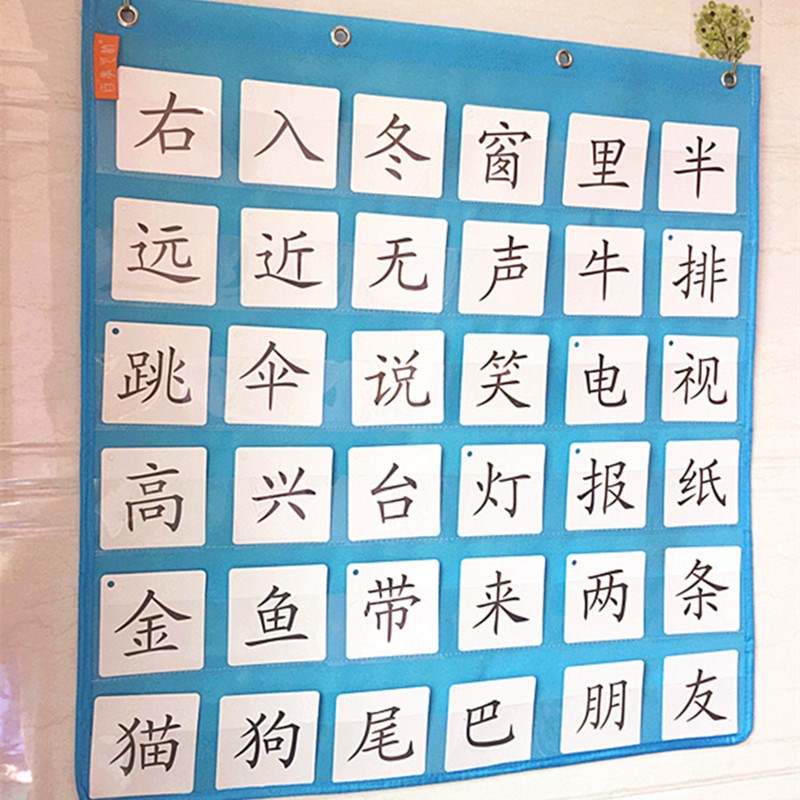 右 入 冬 窗 里 半
远 近 无 声 牛 排
跳 伞 说 笑 电 视
高 兴 台 灯 报 纸
金 鱼 带 来 两 条
猫 狗 尾 巴 朋 友